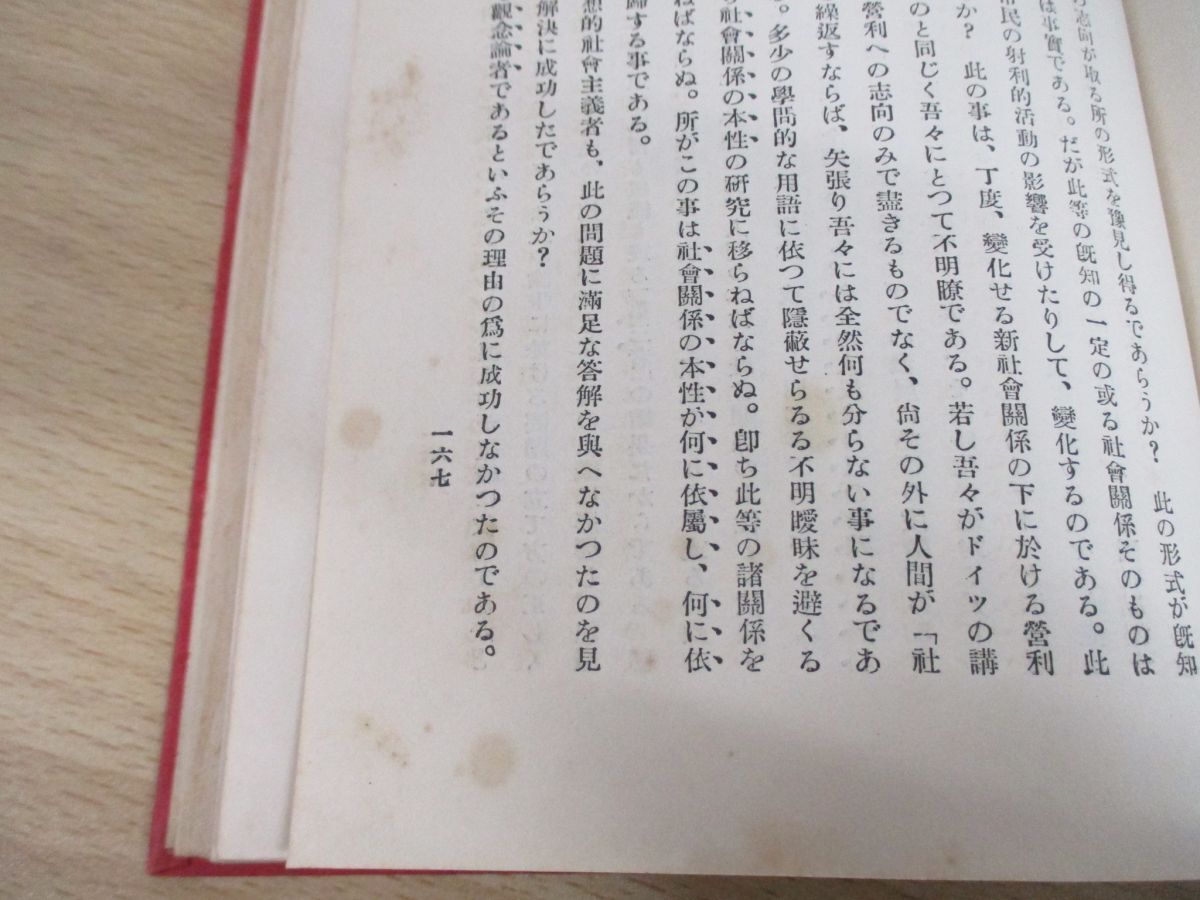 志向が取る所の形式を豫見し得るであらうか？　此の形式が既知
は事實である。だが此等の既知の一定の或る社會關係そのものは
市民の射利的活動の影響を受けたりして、變化するのである。此
か？　此の事は、丁度、變化せる新社會關係の下に於ける營利
のと同じく吾々にとつて不明瞭である。若し吾々がドイツの講
營利への志向のみで盡きるものでなく、尙その外に人間が「社
繰返すならば、矢張り吾々には全然何も分らない事になるであ
。多少の學問的な用語に依つて隱蔽せらるる不明曖昧を避くる
社會關係の本性の研究に移らねばならぬ。卽ち此等の諸關係を
ねばならぬ。所がこの事は社會關係の本性が何に依屬し、何に依
歸する事である。
想的社會主義者も、此の問題に滿足な答解を與へなかつたのを見
解決に成功したであらうか？
觀念論者であるといふその理由の爲に成功しなかつたのである。
一六七